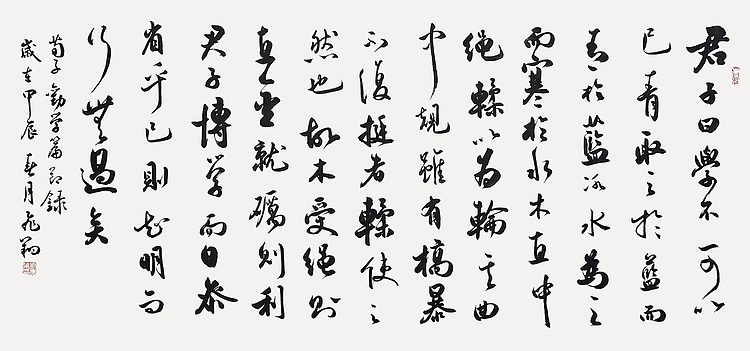 君子曰學不可以
已青取之於藍而
青於藍冰水為之
而寒於水木直中
绳輮以為輪其曲
中規雖有槁暴
不復挺者輮使之
然也故木受绳則
直金就礪則利
君子博学而日参
省乎己則知明而
行無過矣
荀子勸学篇节録
歲在甲辰春月飛翔